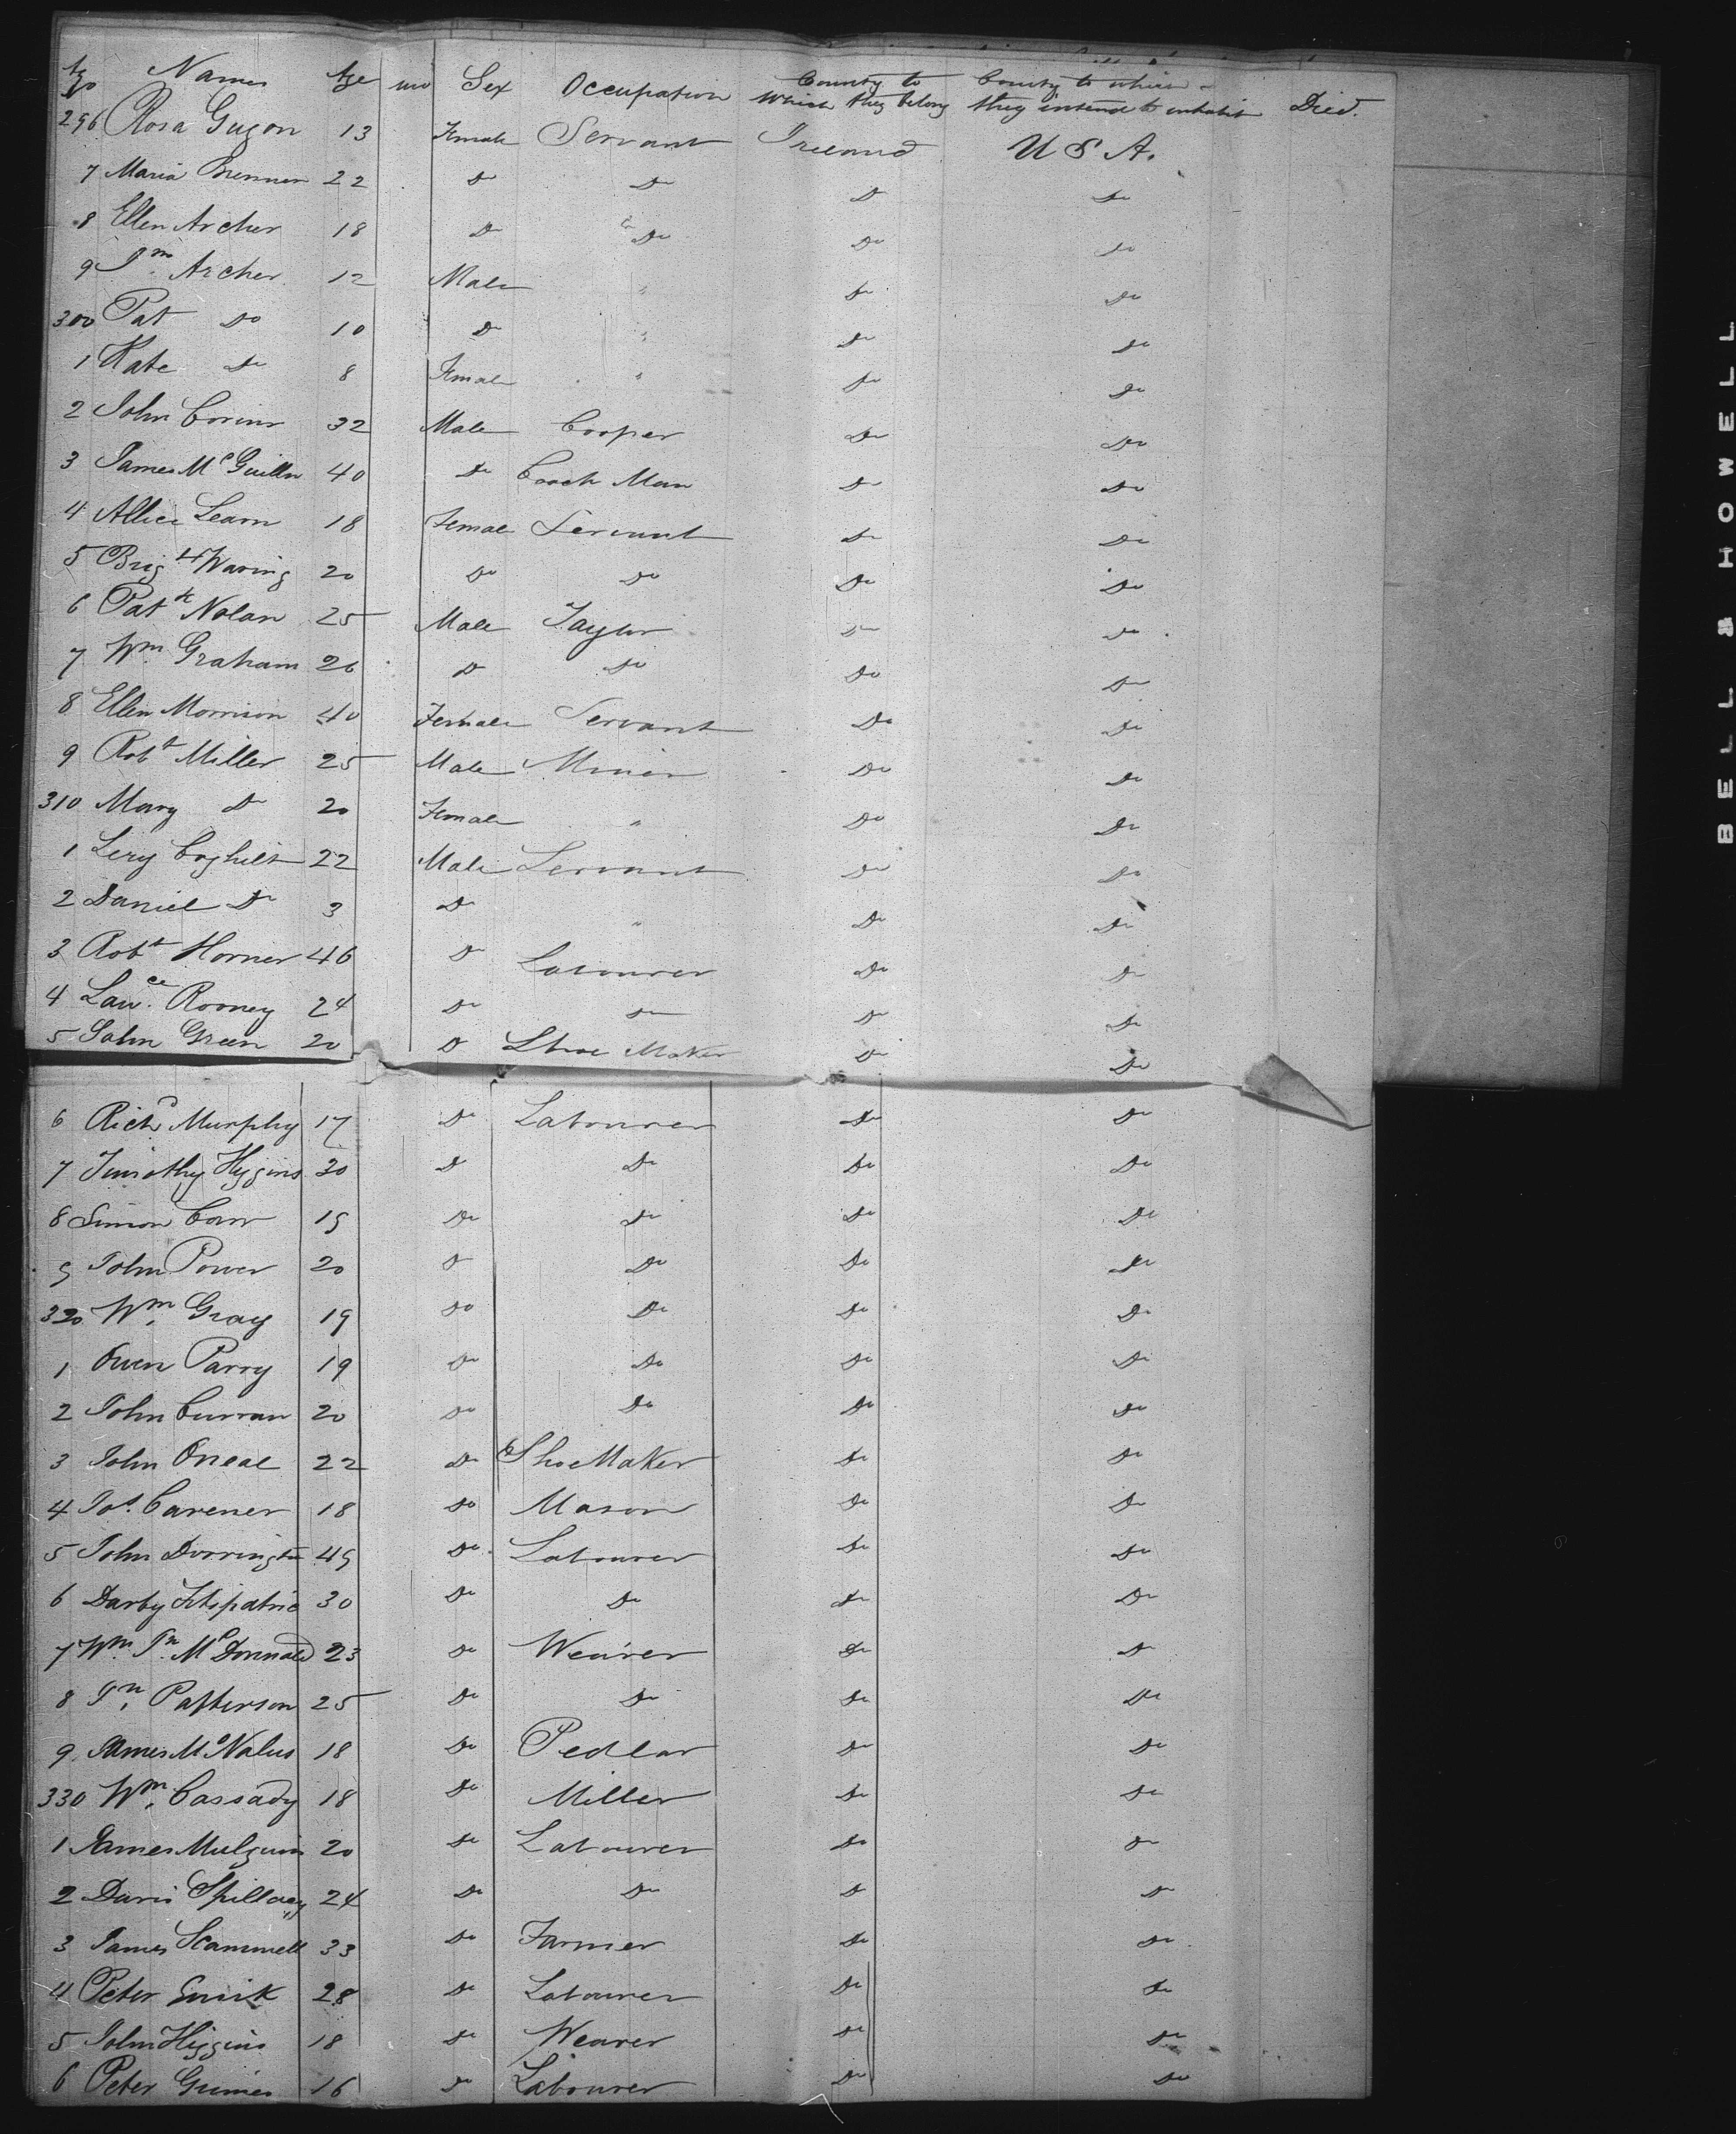 No Names Age mo Sex Occupation County to which they belong County to which they intend to inhabit Died.
296 Rosa Gugon 13 Female Servant Ireland U S A.
7 Maria Brennen 22 Do Do Do Do
8 Ellen Archer 18 Do Do Do Do
9 Jno Archer 12 Male " Do Do
300 Pat Do 10 Do " Do Do
1 Kate Do 8 Female " Do Do
2 John 32 Male Cooper Do Do
3 James 40 Do Coach Man Do Do
4 Allice Learn 18 Female Servant Do Do
5 Brigt Waring 20 Do Do Do Do
6 Patk Nolan 25 Male Taylor Do Do
7 Wm Graham 26 Do Do Do Do
8 Ellen Morrison 40 Female Servant Do Do
9 Robt Miller 25 Male Miner Do Do
310 Mary Do 20 Female " Do Do
1 Coghilt 22 Male Servant Do Do
2 Daniel Do 3 Do " Do Do
3 Robt Horner 46 Do Labourer Do Do
4 Lawce Rooney 24 Do Do Do Do
5 John Green 20 Do Shoe Maker Do Do
6 Richd Murphy 17 Do Labourer Do Do
7 Timothy Higgins 30 Do Do Do Do
8 Simon Carr 19 Do Do Do Do
9 John Power 20 Do Do Do Do
320 Wm Gray 19 Do Do Do Do
1 Owen Parry 19 Do Do Do Do
2 John Curran 20 Do Do Do Do
3 John Oneal 22 Do Shoe Maker Do Do
4 Jos. Carener 18 Do Mason Do Do
5 John Dorrington 49 Do Labourer Do Do
6 Darby Fitspatric 30 Do Do Do Do
7 Wm Jn McDonnald 23 Do Weaver Do Do
8 Jn Patterson 25 Do Do Do Do
9 James 18 Do Pedlar Do Do
330 Wm Cassady 18 Do Miller Do Do
1 James 20 Do Labourer Do Do
2 Spillacy 24 Do Do Do Do
3 James Scammell 33 Do Farmer Do Do
4 Peter 28 Do Labourer Do Do
5 John Higgins 18 Do Weaver Do Do
6 Peter Grimes 16 Do Labourer Do Do
BELL & HOWELL